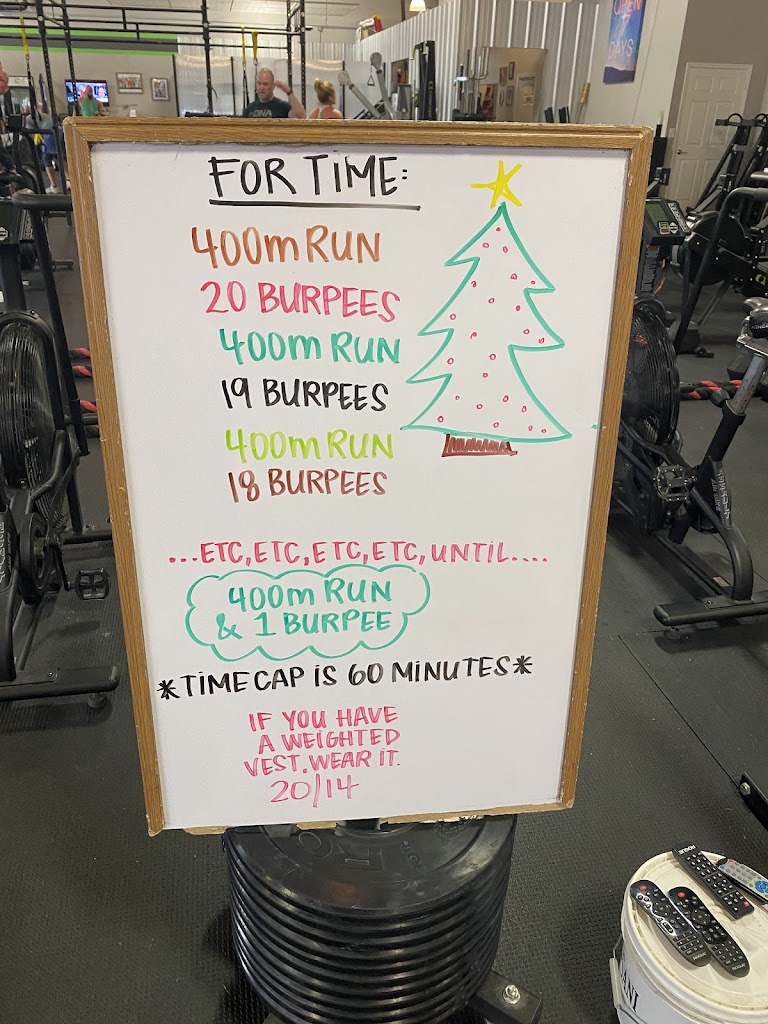 OPEN
7
DAYS
DNA
FOR TIME:
400m RUN
20 BURPEES
400m RUN
19 BURPEES
400m RUN
18 BURPEES
...ETC, ETC, ETC, ETC, UNTIL....
400m RUN
& 1 BURPEE
*TIME CAP IS 60 MINUTES*
IF YOU HAVE
A WEIGHTED
VEST, WEAR IT.
20/14